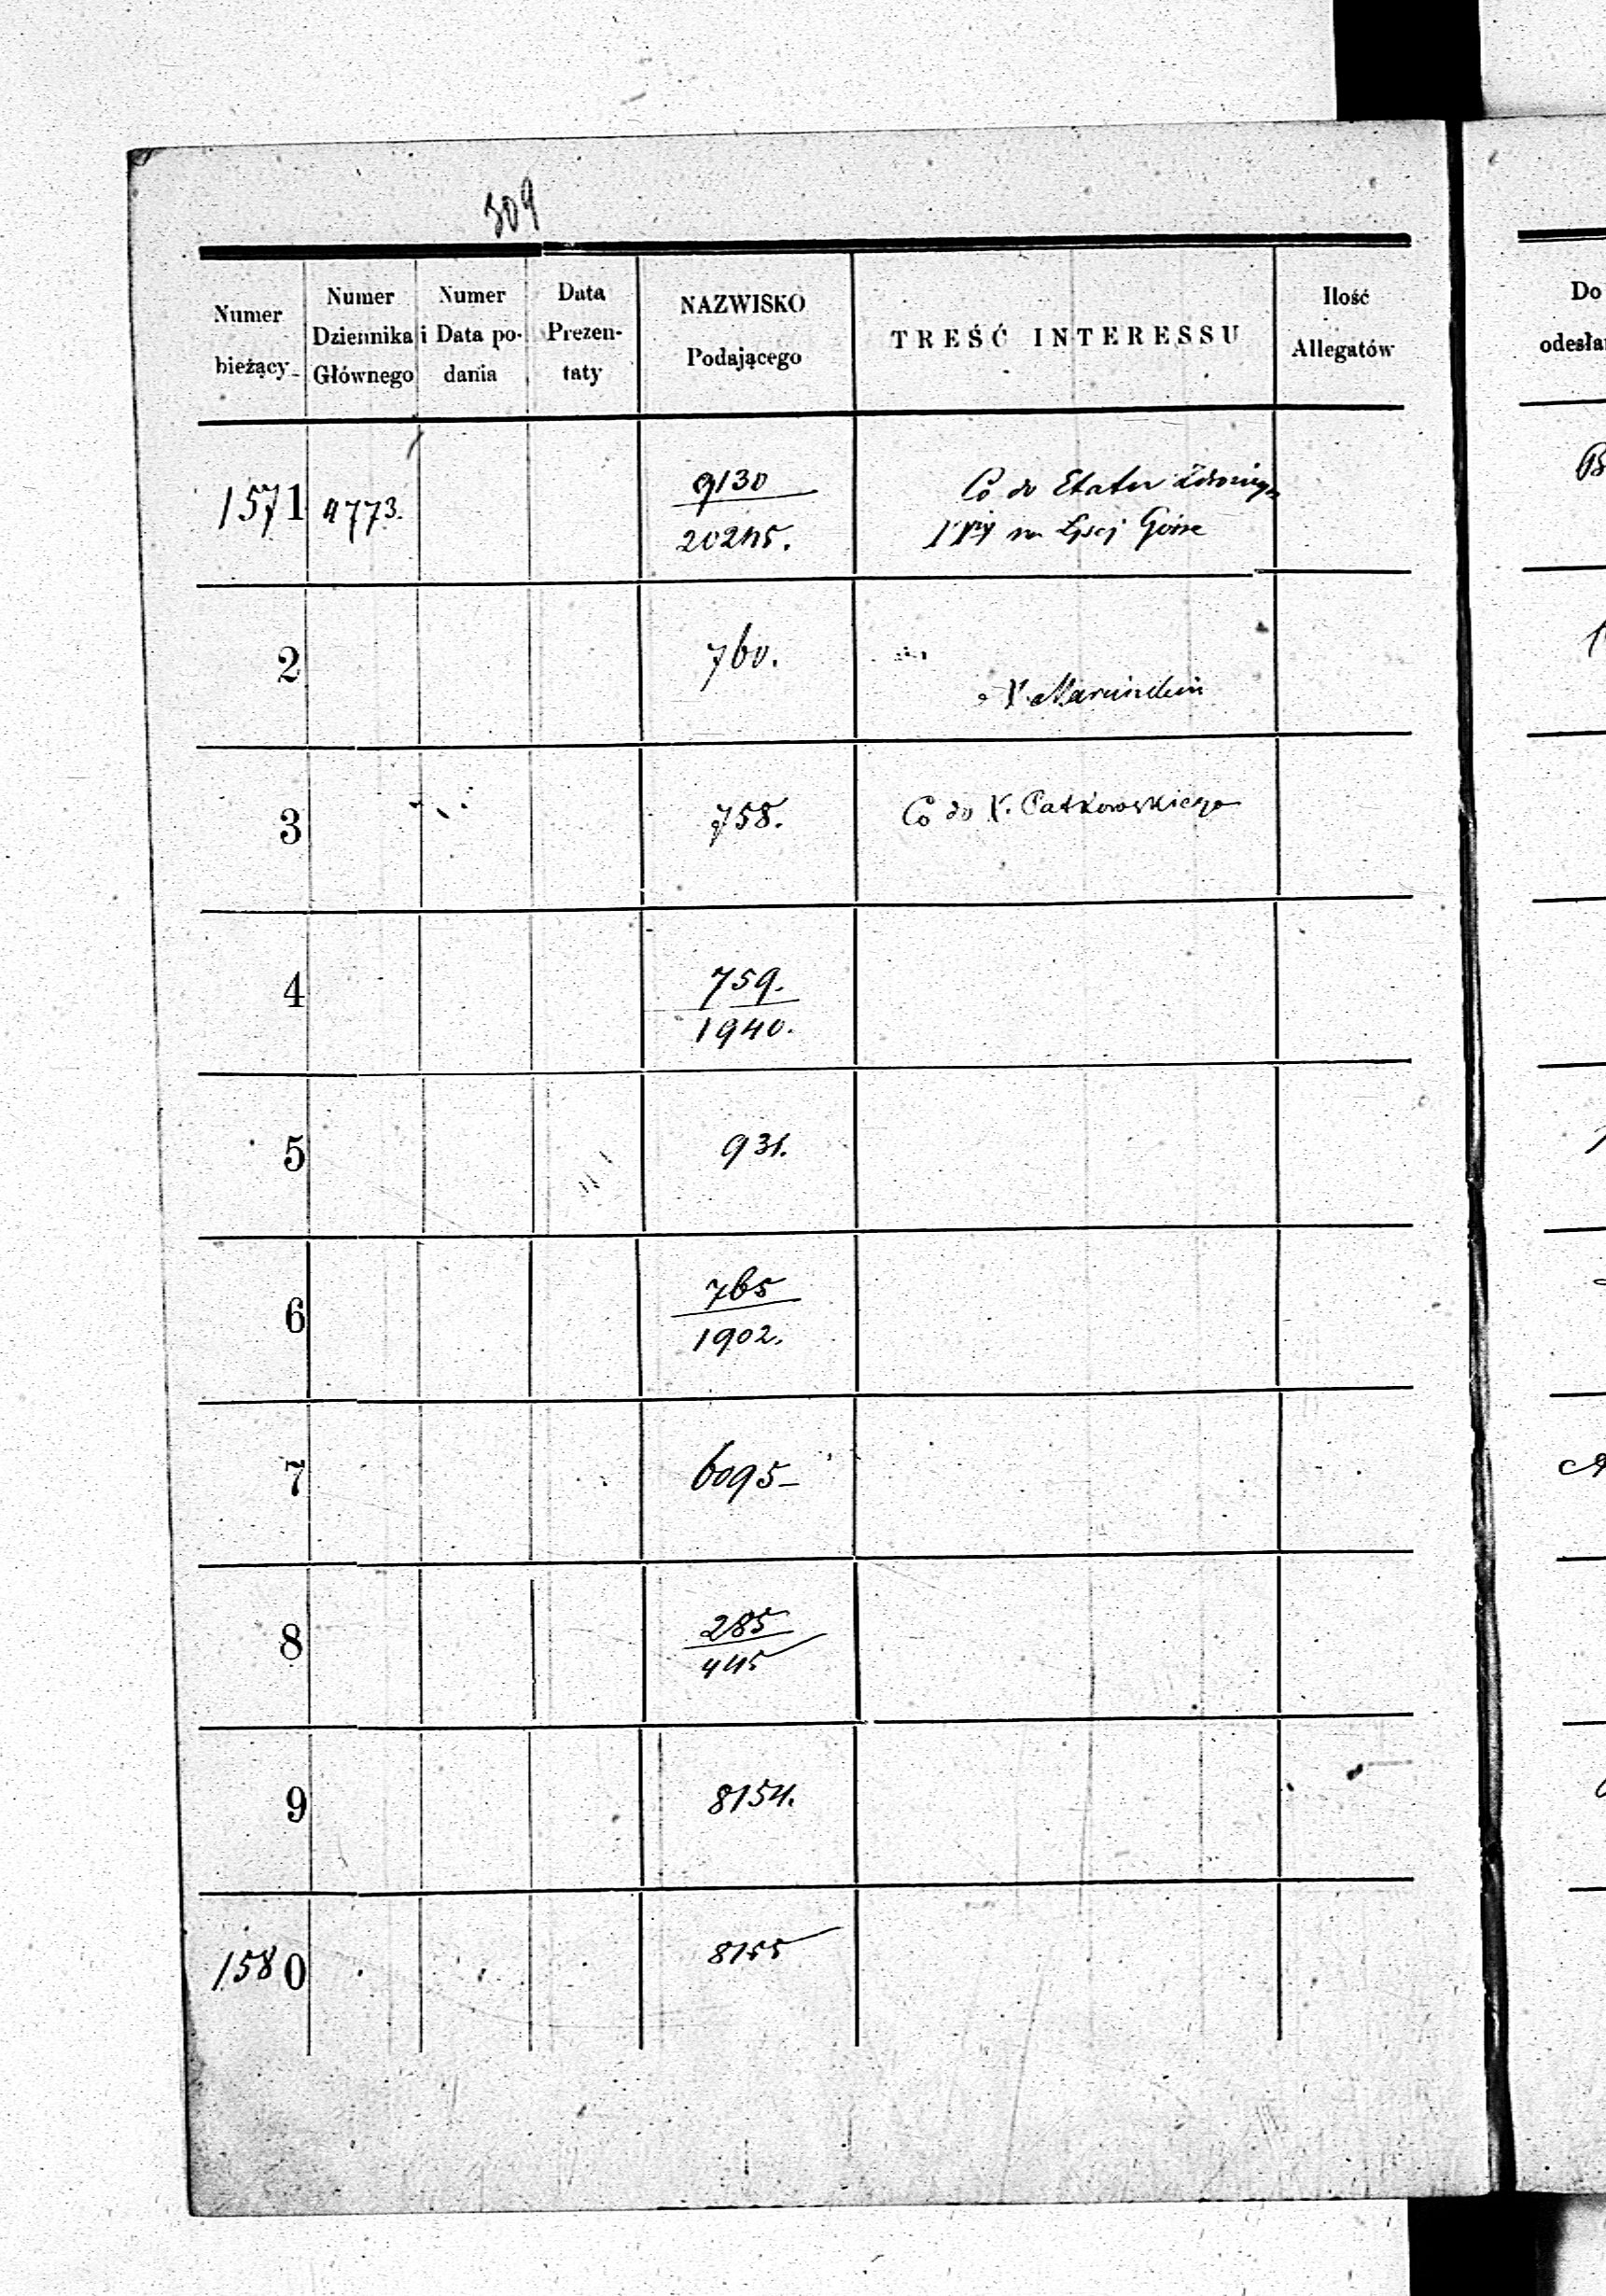 309
Numer bieżący
Numer Dziennika Głównego
Numer i Data podania
Data Prezentaty
NAZWISKO Podającego
TREŚĆ INTERESSU
Ilość Allegatów
Do
odesła
1571 4773. 9130 Co do Etatu
20245. na Łysej Górze
2 760.
X.
3 758. Co do X. Patkowskiego
4 759.
1940.
5 931.
6 765
1902.
7 6095
8 285
445
9 8154.
1580 8155